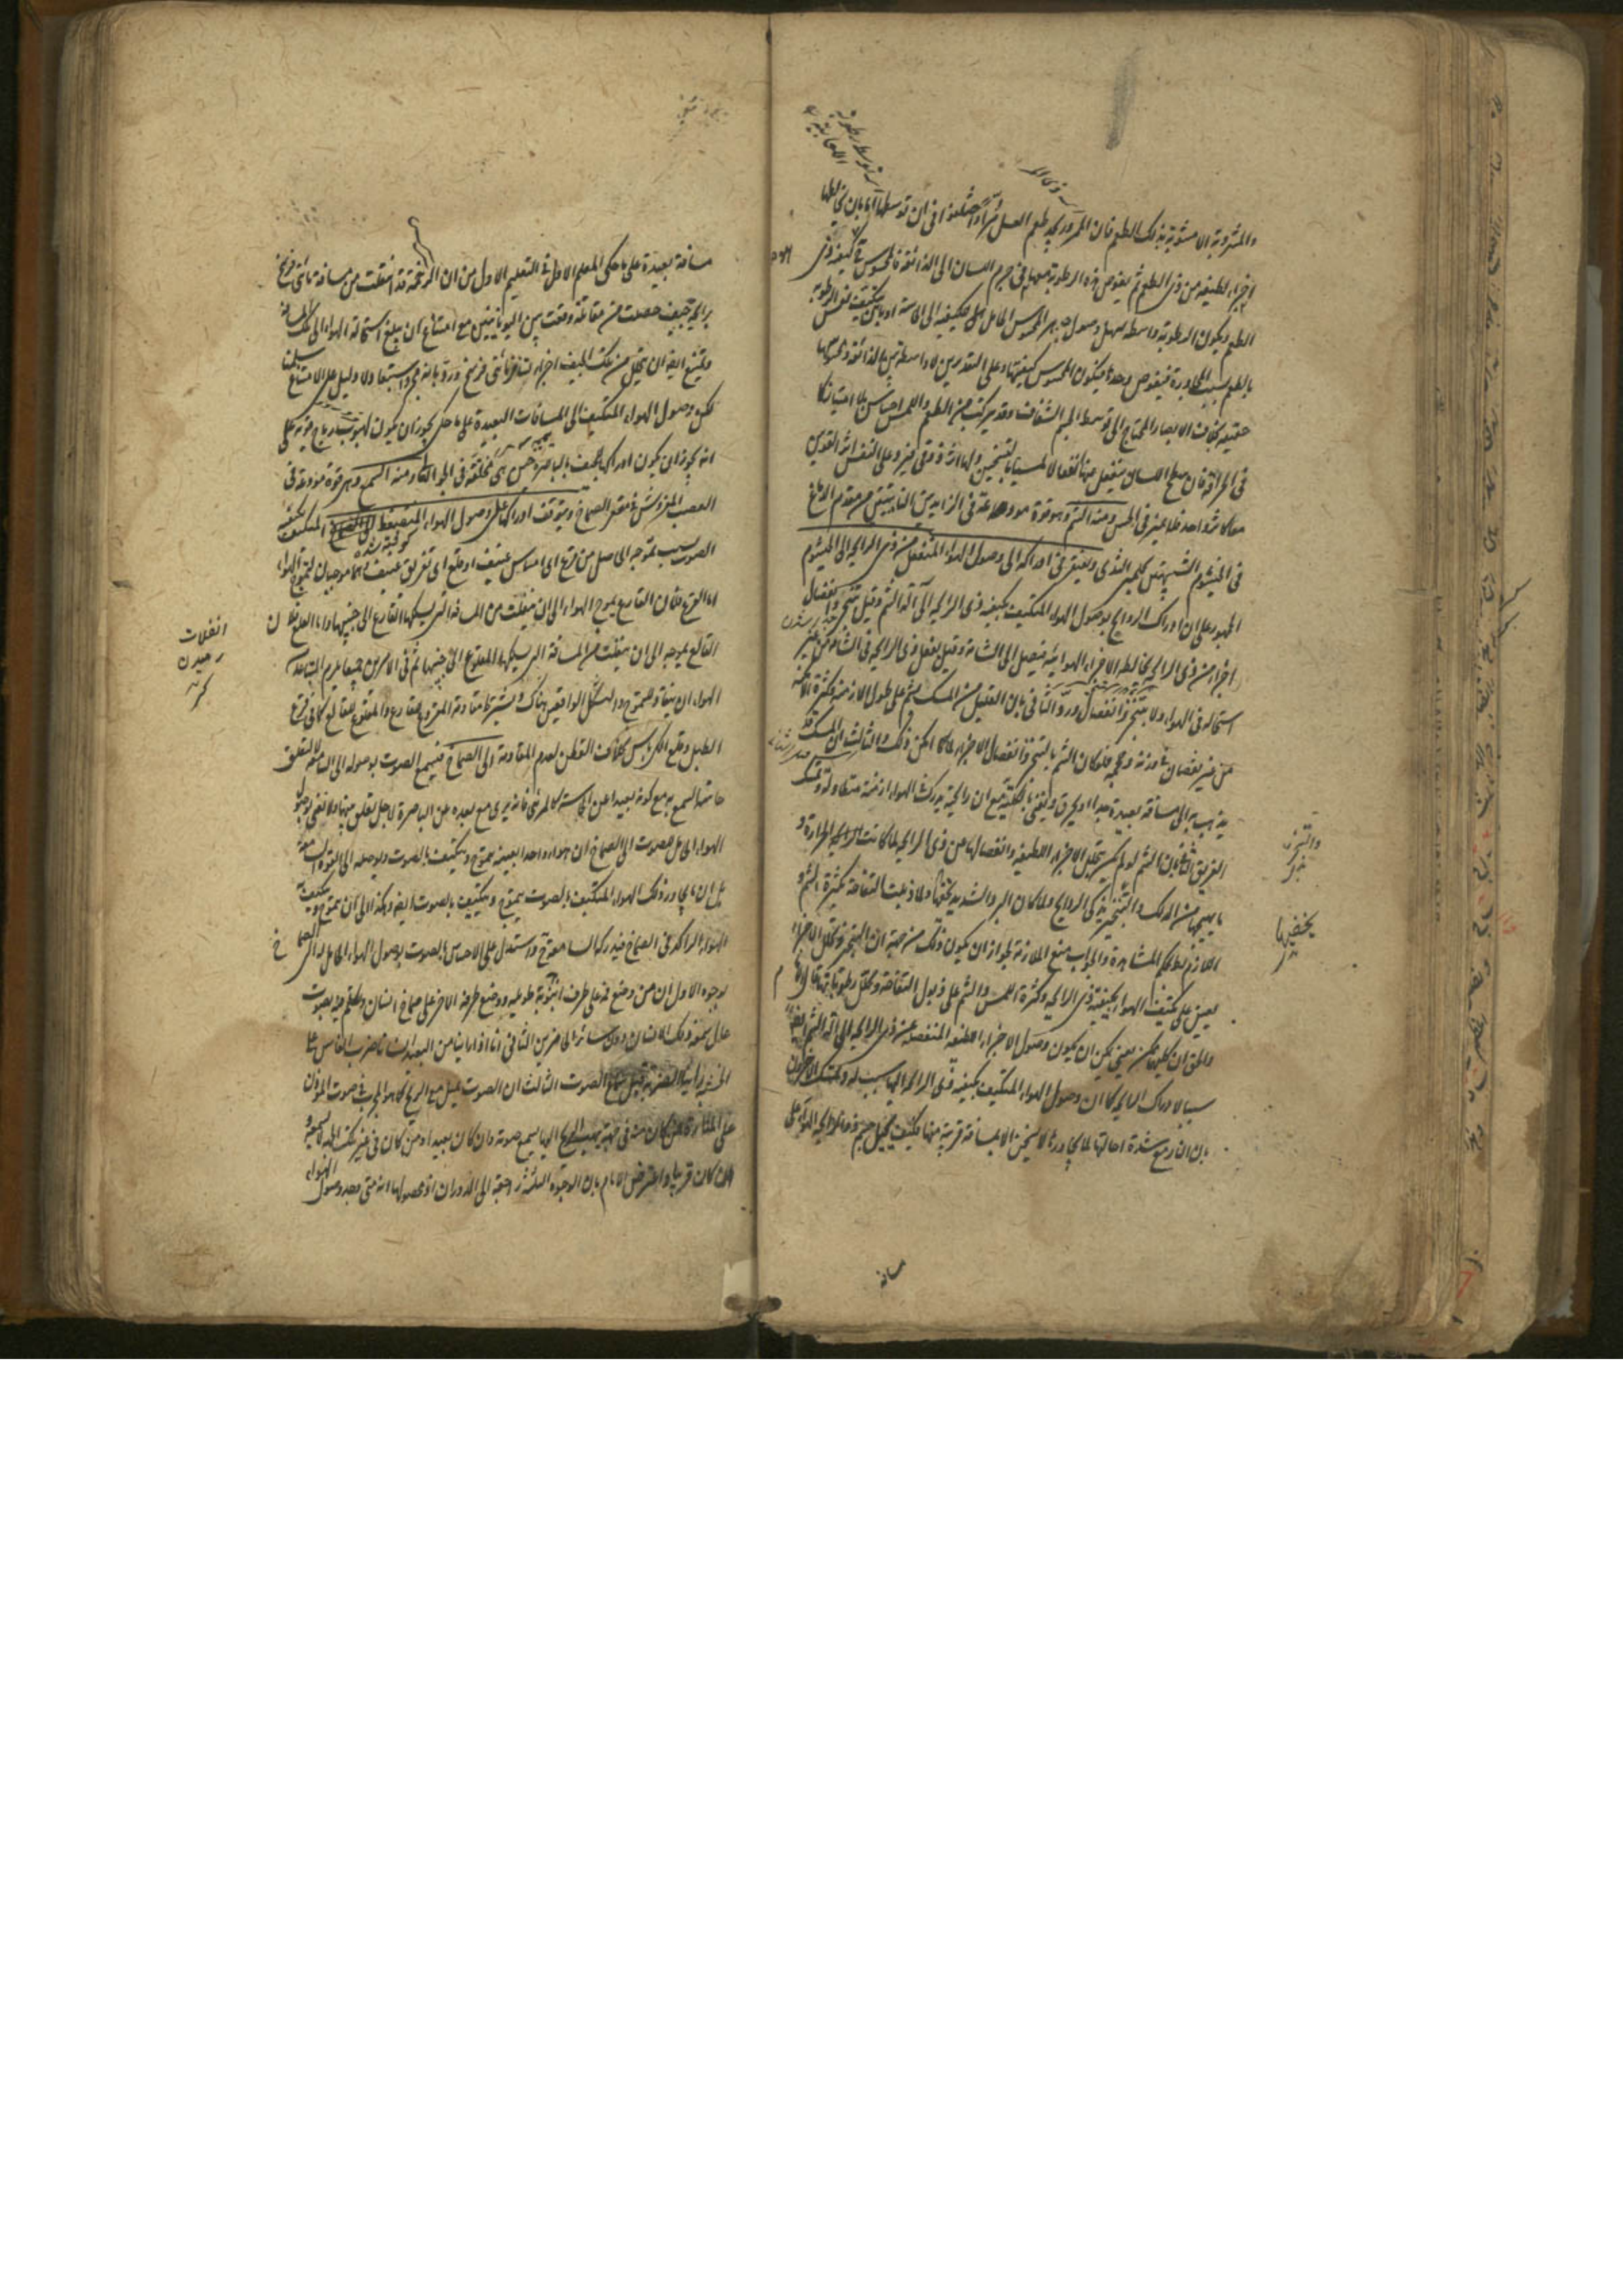 والمشروبة الا مشوبة بذلك الطعم فان الممرور يجد طعم العسل مرا واختلفوا فى ان توسطها اما بان يخالطها
اجزاء لطيفة من ذى الطعم ثم يغوص هذه الرطوبة معها فى جرم اللسان الى الذائقة فالمحسوس كيفية ذى
الطعم ويكون الرطوبة واسطة تسهل وصول المحسوس الحامل للكيفية الى الحاسة او بان يتكيف نفس الرطوبة
بالطعم بسبب المجاورة فيغوص وحدها فيكون المحسوس كيفيتها وعلى التقديرين لا واسطة بين الذائقة ومحسوسها
حقيقة بخلاف الابصار المحتاج الى توسط الجسم الشفاف وقد يتركب من الطعم واللمس احساس بلا امتياز كما
فى الحرافة فان سطح اللسان ينفعل عنها انفعالا لمسيا بالتسخين ولها اثر ذوقى فيرد على النفس اثر القوتين
معا كاثر واحد فلا يميز فى الحس ومنه الشم وهو قوة مودعة فى الزايدتين النابتتين من مقدم الدماغ
فى الخيشوم الشبيهتين بحلمتى الثدى ويفتقر فى ادراكه الى وصول الهواء المنفعل من ذى الرايحة الى الخيشوم
الجمهور على ان ادراك الروايح بوصول الهواء المتكيف بكيفية ذى الرايحة الى آلة الشم وقيل بتبخر وانفصال
اجزاء من ذى الرايحة يخالط الاجزاء الهوائية فيصل الى الشامة وقيل بفعل ذى الرايحة فى الشامة من غير
استحالة فى الهواء ولا بتبخر وانفصال ورد الثانى بان القليل من المسك يشم على طول الازمنة وكثرة الامكنة
من غير نقصان فى وزنه وحجمه فلو كان الشم بالتبخر وانفصال الاجزاء لما امكن ذلك والثالث بان المسك قد
يذهب به الى مسافة بعيدة جدا او يحرق ويفنى بالكلية مع ان رائحته يدرك فى الهواء ازمنة متطاولة وتمسك
الفريق الثانى بان الشم لو لم يكن بتحلل الاجزاء اللطيفة وانفصالها من ذى الرايحة لما كانت الحرارة و
ما يهيجها من الدلك والتبخير يذكى الروايح ولما كان البرد الشديد يخفيها ولما ذبلت التفاحة بكثرة الشم و
اللازم باطل بحكم المشاهدة والجواب منع الملازمة لجواز ان يكون ذلك من جهة ان التبخر وتحلل الاجزاء
يعين على تكيف الهواء بكيفية ذى الرايحة وكثرة اللمس والشم على ذبول التفاحة وتحلل رطوباتها
والحق ان كليهما ممكن يعنى يمكن ان يكون وصول الاجزاء اللطيفة المنفصلة عن ذى الرايحة الى آلة الشم ايضا
سببا لادراك الرايحة كما ان وصول الهواء المتكيف بكيفية ذى الرايحة اليها سبب له وتمسك الآخرون
بان النار مع شدة احالتها لما يجاورها لا يسخن الا مسافة قريبة منها فكيف يحيل جسم ذو الرايحة الهواء على
والتبخر
يخفيها
مسافة
مسافة بعيدة على ما حكى المعلم الاول فى التعليم الاول من ان الرخمة قد انتقلت من مسافة مائتى فرسخ
برايحة جيف حصلت من مقاتلة وقعت بين اليونانيين مع امتناع ان يبلغ استحالة الهواء الى تلك المسافة
ويمتنع ايضا ان يتحلل من تلك الجيف اجزاء تنتشر مائتى فرسخ ورد بانه مجرد استبعاد ولا دليل على الامتناع سلمنا
لكن وصول الهواء المتكيف الى المسافات البعيدة على ما حكى يجوز ان يكون لهبوب رياح قوية على
انه يجوز ان يكون ادراك الجيف بالباصرة حين هى محلقة فى الجو العالى ومنه السمع وهو قوة مودعة فى
العصب المفروش فى مقعر الصماخ ويتوقف ادراكها على وصول الهواء المنضغط الى الصماخ المتكيف بكيفية
الصوت بسبب تموجه الحاصل من قرع اى امساس عنيف او قلع اى تفريق عنيف لانهما موجبان لتموج الهواء
اما القرع فلان القارع يموج الهواء الى ان ينفلت من المسافة التى يسلكها القارع الى جنبيها واما القلع فلان
القالع يموجه الى ان ينفلت من المسافة التى يسلكها المقلوع الى جنبيها ثم فى الامرين جميعا يلزم المتباعد
الهواء ان ينقاد للتموج والشكل الواقعين هناك ويشترط مقاومة المقروع للقارع والمقلوع للقالع كما فى قرع
الطبل وقلع الكرباس بخلاف القطن لعدم المقاومة الى الصماخ فيسمع الصوت بوصوله الى السامعة لا لتعلق
حاسة السمع به مع كونه بعيدا عن الحاسة كالمرئى فانه يرى مع بعده عن الباصرة لاجل تعلق بينهما ولا نعنى بوصول
الهواء الحامل للصوت الى الصماخ ان هواء واحدا بعينه يتموج ويتكيف بالصوت ويوصله الى القوة السامعة
بل ان ما يجاور ذلك الهواء المتكيف بالصوت يتموج ويتكيف بالصوت ايضا وهكذا الى ان يتموج ويتكيف به
الهواء الراكد فى الصماخ فيدركه السامعة ح واستدل على الاحساس بالصوت بوصول الهواء الحامل له الى الصماخ
بوجوه الاول ان من وضع فمه على طرف انبوبة طويلة ووضع طرفه الآخر على صماخ انسان وتكلم فيه بصوت
عال سمعه ذلك الانسان دون سائر الحاضرين الثانى انا اذا راينا من البعيد انسانا ضرب الفاس على
الخشبة راينا الضربة قبل سماع الصوت الثالث ان الصوت يميل مع الريح كما هو المجرب فى صوت المؤذن
على المنارة فمن كان منه فى جهة يهب الريح اليها يسمع صوته وان كان بعيدا ومن كان فى غير تلك الجهة لا يسمعه و
ان كان قريبا واعترض الامام بان الوجوه الثلثة راجعة الى الدوران اذ محصولها انه متى وجد وصول الهواء